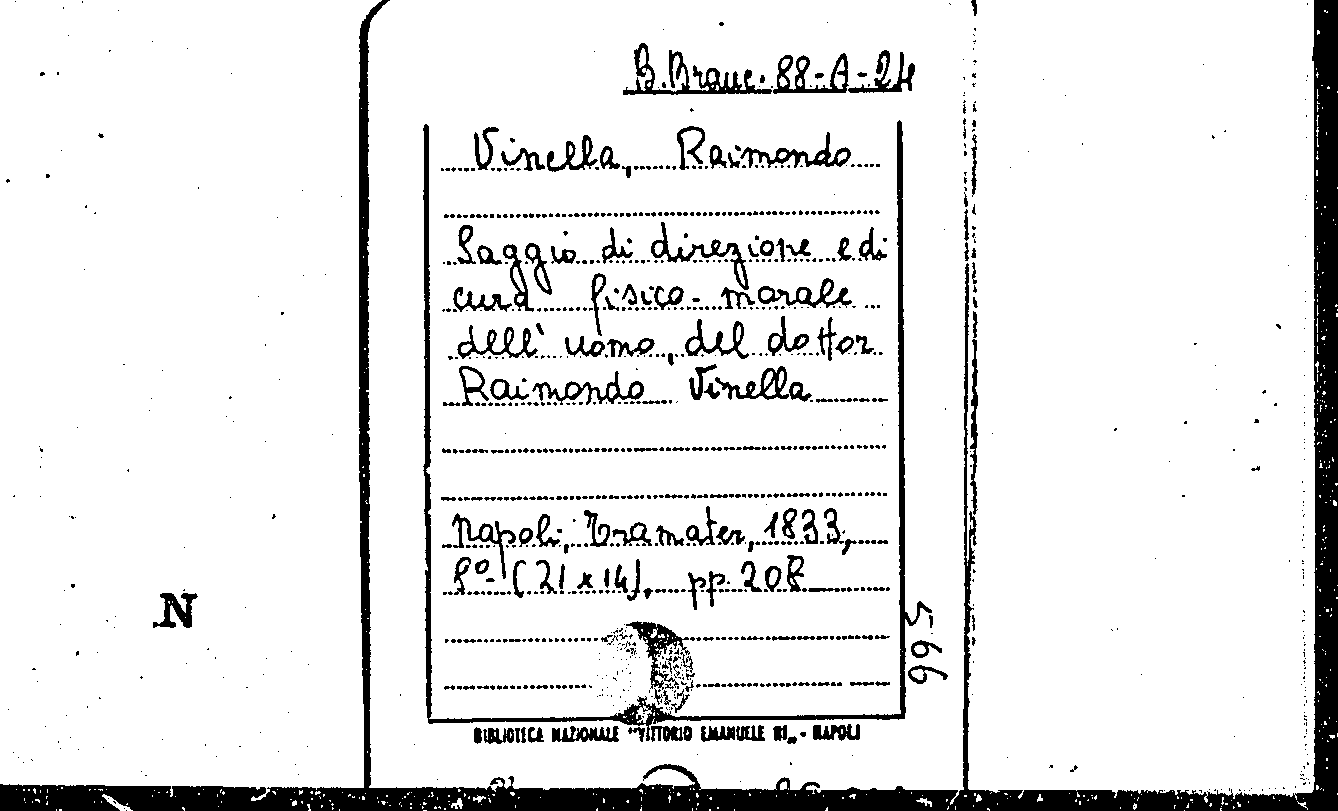 B.Branc. 88-A-24
Vinella, Raimondo
Saggio di direzione e di
cura fisico-morale
dell'uomo, del dottor
Raimondo Vinella
Napoli, Tramater, 1833,
8º (21x14), pp. 208
566
N
BIBLIOTECA NAZIONALE "VITTORIO EMANUELE III„ - NAPOLI